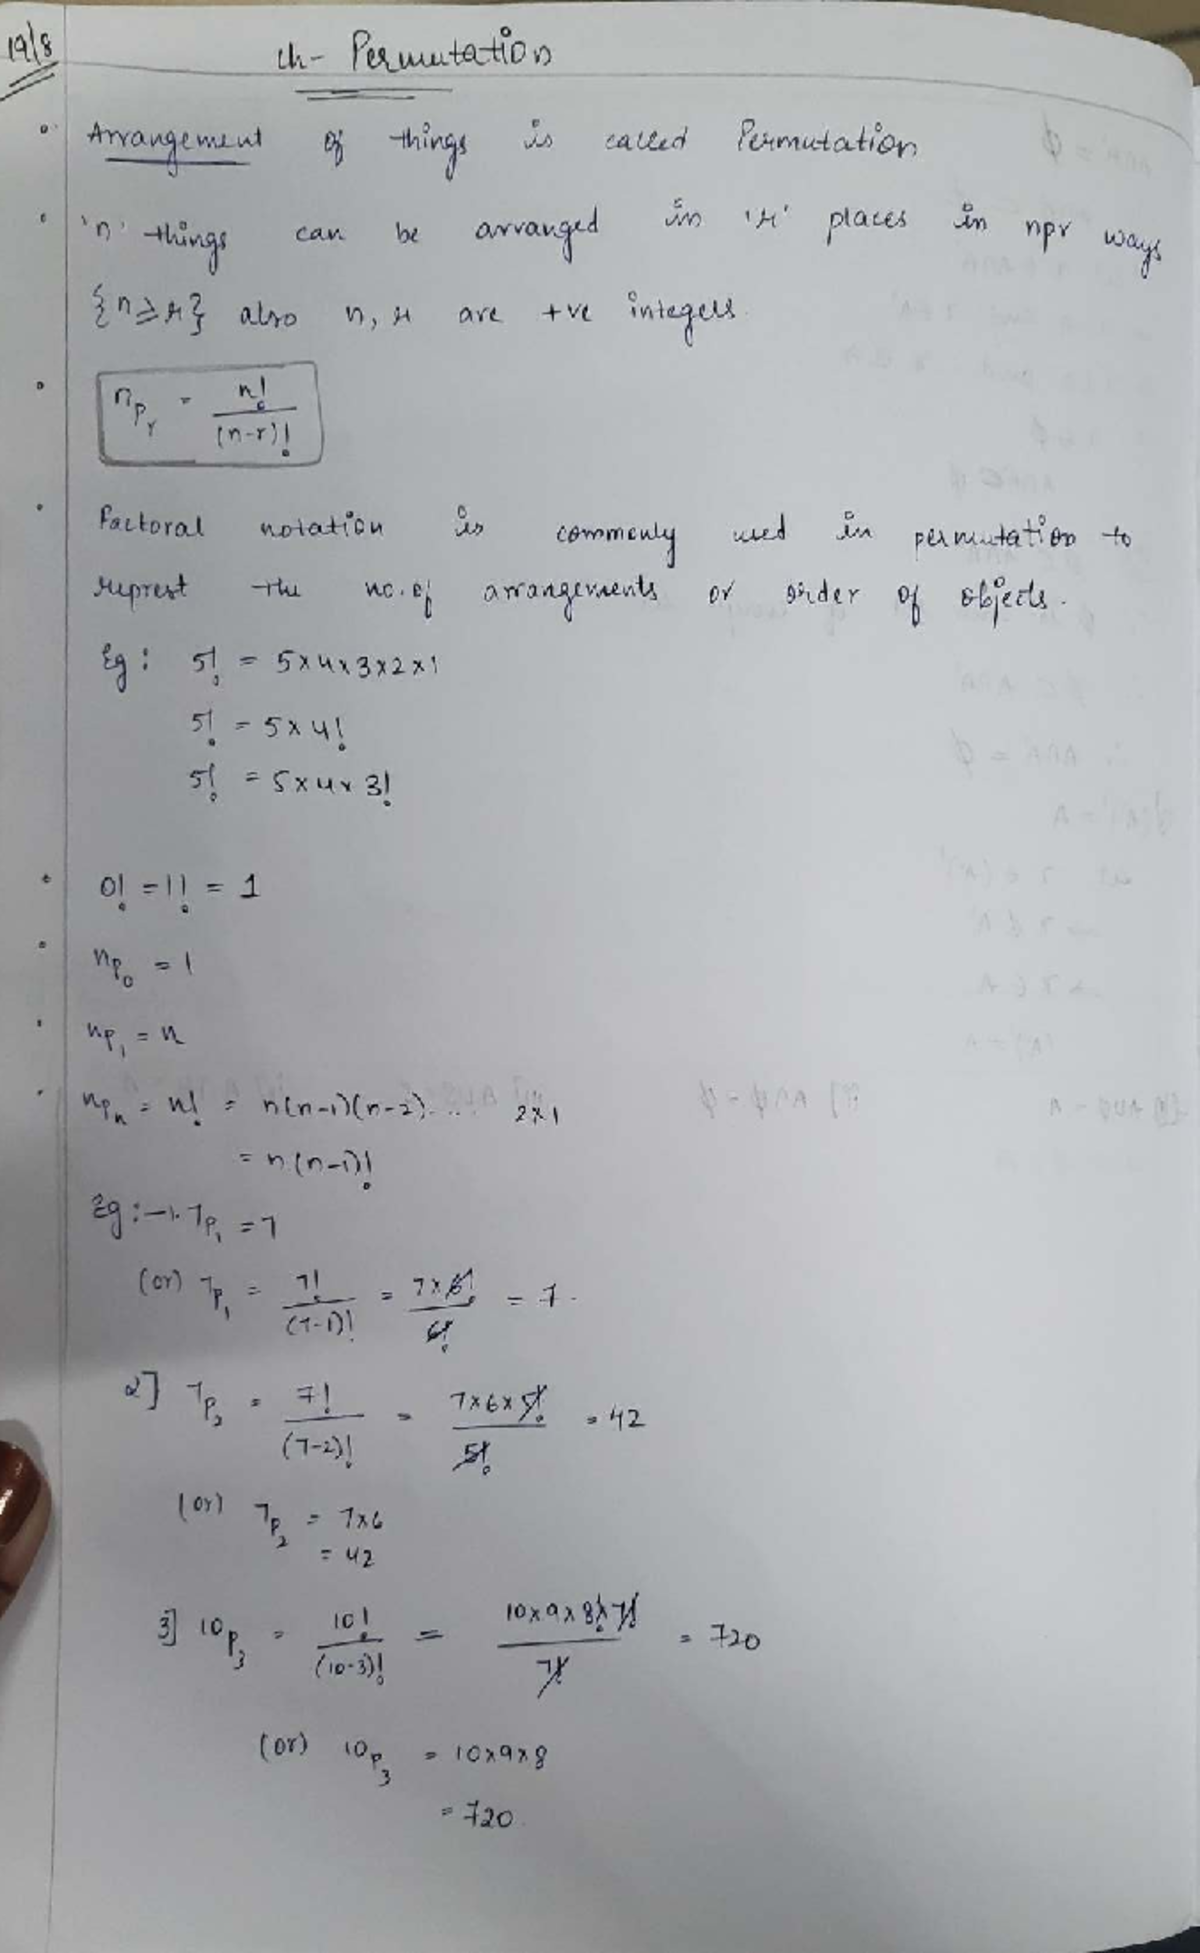 19/8
Ch- Permutation
Arrangement of things is called Permutation
'n' things can be arranged in 'r' places in npr ways
{n≥r} also n, r are +ve integers.
nPr = n!/(n-r)!
Factoral notation is commonly used in permutation to
represt the no. of arrangements or order of objects.
Eg: 5! = 5×4×3×2×1
5! = 5×4!
5! = 5×4×3!
0! = 1! = 1
nP0 = 1
nP1 = n
nPn = n! = n(n-1)(n-2)... 2×1
= n(n-1)!
Eg:-1. 7P1 = 7
(or) 7P1 = 7!/(7-1)! = 7×6!/6! = 7.
2] 7P2 = 7!/(7-2)! = 7×6×5!/5! = 42
(or) 7P2 = 7×6
= 42
3] 10P3 = 10!/(10-3)! = 10×9×8×7!/7! = 720
(or) 10P3 = 10×9×8
= 720.